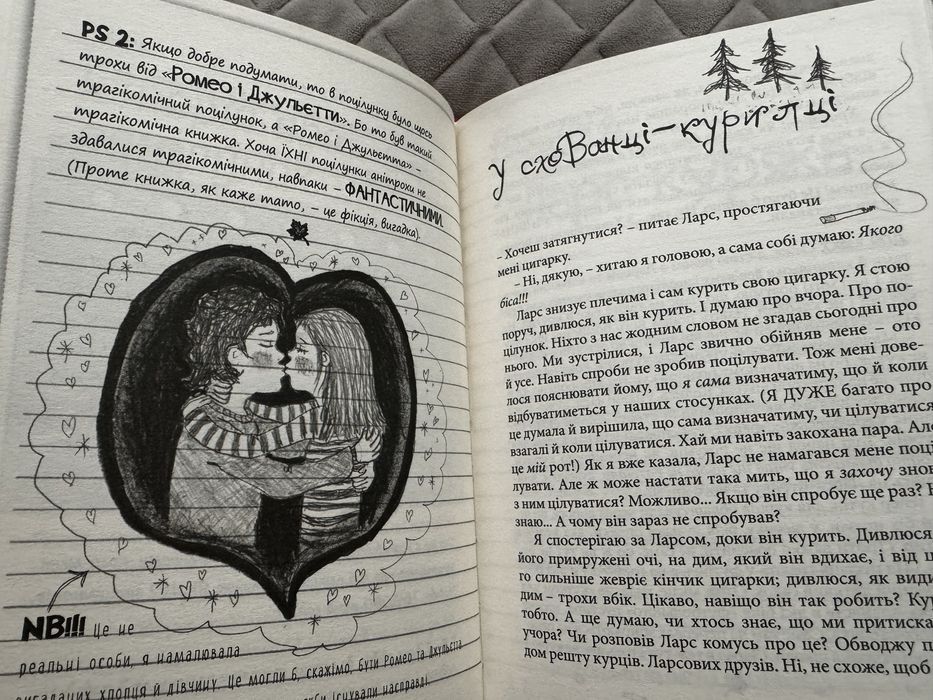 PS 2: Якщо добре подумати, то в поцілунку було щось
трохи від «Ромео і Джульєтти». Бо то був такий
трагікомічний поцілунок, а «Ромео і Джульєтта» –
трагікомічна книжка. Хоча ЇХНІ поцілунки анітрохи не
здавалися трагікомічними, навпаки – ФАНТАСТИЧНИМИ.
(Проте книжка, як каже тато, – це фікція, вигадка).
NB!!! Це не
реальні особи, я намалювала
вигаданих хлопця й дівчину. Це могли б, скажімо, бути Ромео та Джульєтта
існували насправді.
у схованці-курилці
– Хочеш затягнутися? – питає Ларс, простягаючи
мені цигарку.
– Ні, дякую, – хитаю я головою, а сама собі думаю: Якого
біса!!!
Ларс знизує плечима і сам курить свою цигарку. Я стою
поруч, дивлюся, як він курить. І думаю про вчора. Про по-
цілунок. Ніхто з нас жодним словом не згадав сьогодні про
нього. Ми зустрілися, і Ларс звично обійняв мене – ото
й усе. Навіть спроби не зробив поцілувати. Тож мені дове-
лося пояснювати йому, що я сама визначатиму, що й коли
відбуватиметься у наших стосунках. (Я ДУЖЕ багато про
це думала й вирішила, що сама визначатиму, чи цілуватися
взагалі й коли цілуватися. Хай ми навіть закохана пара. Але
це мій рот!) Як я вже казала, Ларс не намагався мене поці
лувати. Але ж може настати така мить, що я захочу знов
з ним цілуватися? Можливо... Якщо він спробує ще раз? Н
знаю... А чому він зараз не спробував?
Я спостерігаю за Ларсом, доки він курить. Дивлюся
його примружені очі, на дим, який він вдихає, і від ц
го сильніше жевріє кінчик цигарки; дивлюся, як види
дим – трохи вбік. Цікаво, навіщо він так робить? Кур
тобто. А ще думаю, чи хтось знає, що ми притиска
учора? Чи розповів Ларс комусь про це? Обводжу п
дом решту курців. Ларсових друзів. Ні, не схоже, щоб